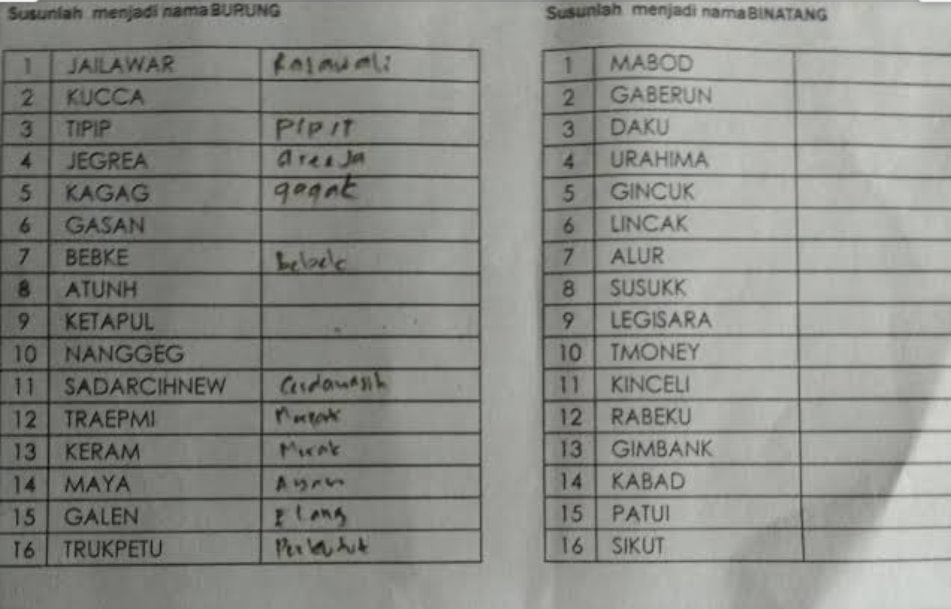 Susunlah menjadi nama BURUNG
1 JAILAWAR Rajawali
2 KUCCA
3 TIPIP PIPIT
4 JEGREA Greeja
5 KAGAG gagak
6 GASAN
7 BEBKE bebek
8 ATUNH
9 KETAPUL
10 NANGGEG
11 SADARCIHNEW
12 TRAEPMI
13 KERAM Merak
14 MAYA Ayam
15 GALEN Elang
16 TRUKPETU Perkutut
Susunlah menjadi nama BINATANG
1 MABOD
2 GABERUN
3 DAKU
4 URAHIMA
5 GINCUK
6 LINCAK
7 ALUR
8 SUSUKK
9 LEGISARA
10 TMONEY
11 KINCELI
12 RABEKU
13 GIMBANK
14 KABAD
15 PATUI
16 SIKUT